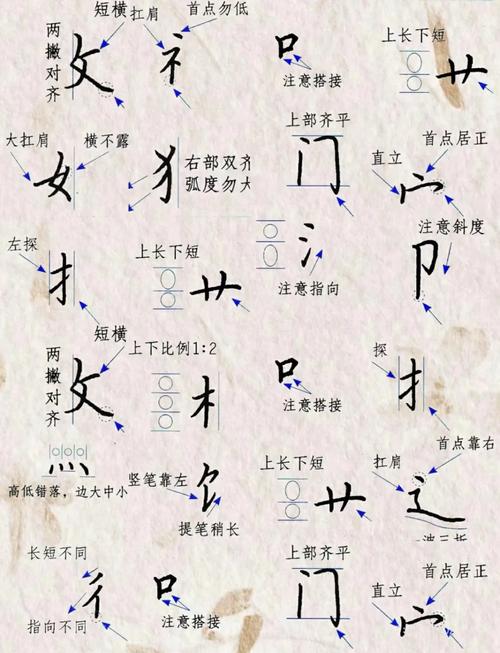 短横 扛肩 首点勿低
两撇对齐 攵 礻 口 注意搭接 上长下短 艹
大扛肩 横不露 女 犭 右部双齐
弧度勿大
上部齐平 门
首点居正
直立 宀
左探 扌 上长下短 艹 氵 注意指向
注意斜度 卩
短横
两撇对齐 攵 上下比例1:2 木 口 注意搭接
探 扌
灬 高低错落，边大中小
竖笔靠左 饣 提笔稍长
上长下短 艹
首点靠右
扛肩 辶
长短不同 彳 指向不同
口 注意搭接
上部齐平 门
首点居正
直立 宀